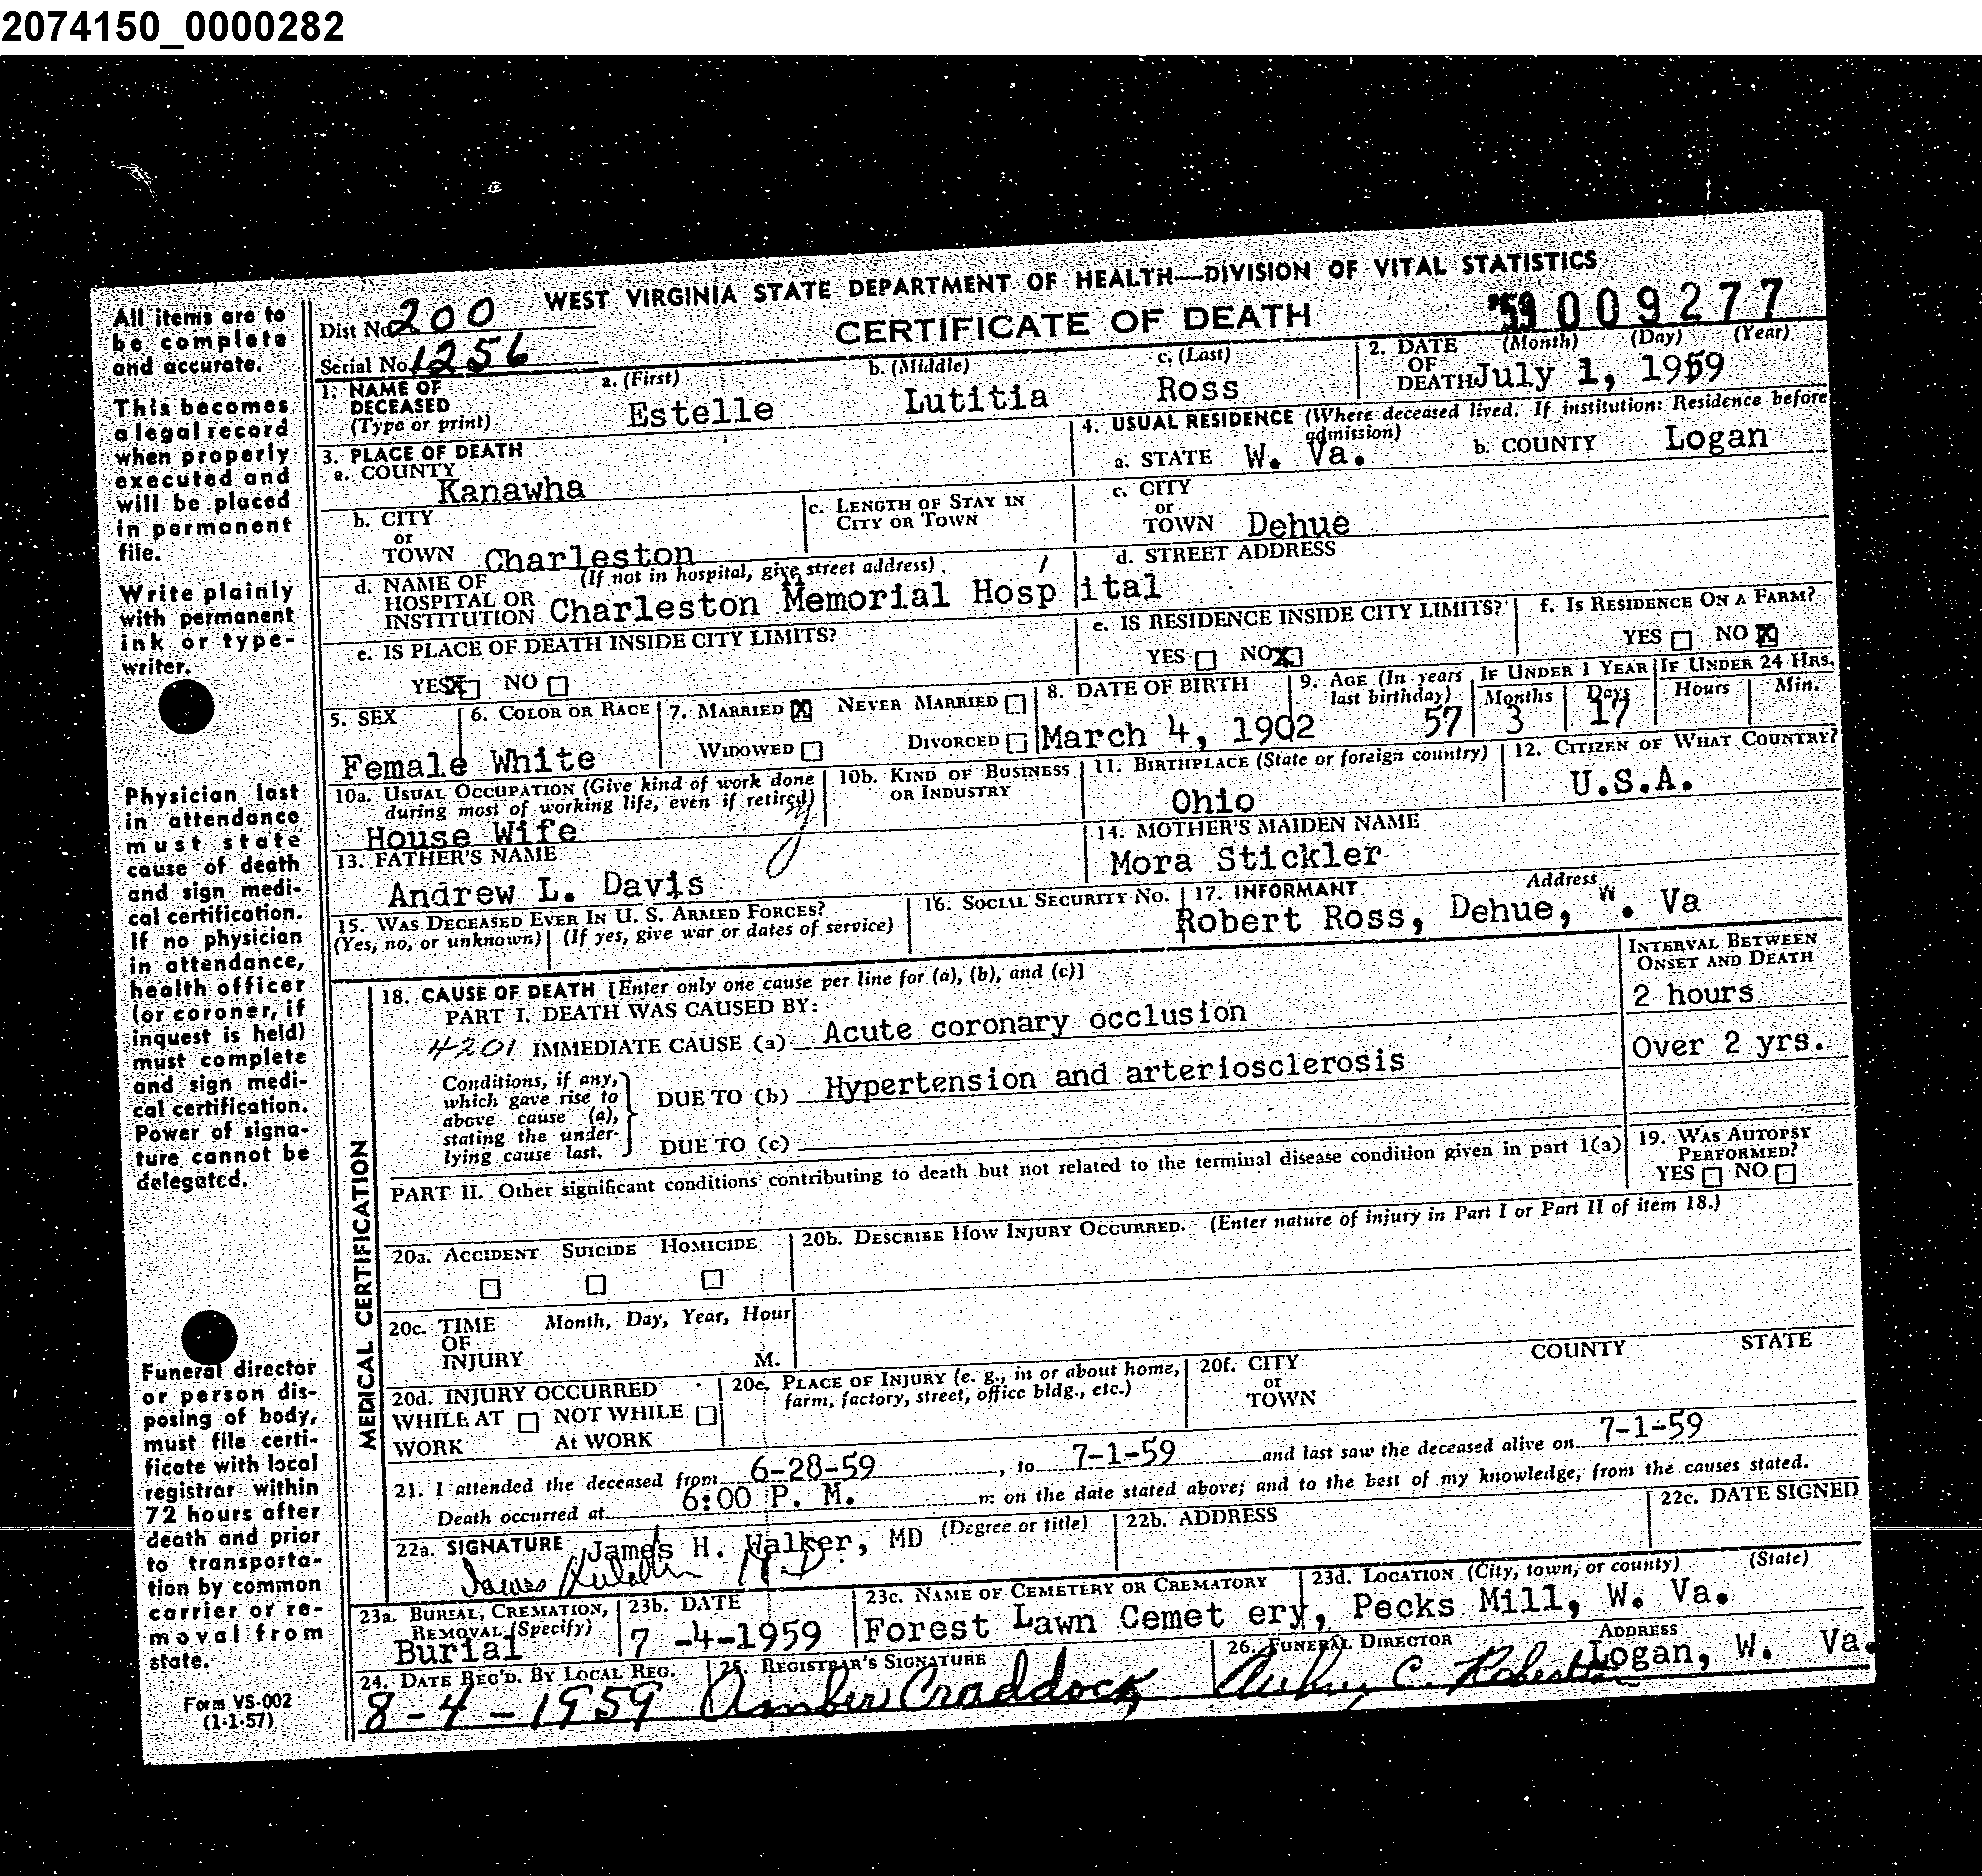 2074150_0000282
WEST VIRGINIA STATE DEPARTMENT OF HEALTH—DIVISION OF VITAL STATISTICS
CERTIFICATE OF DEATH
'59 009277
Dist No. 200
Serial No. 1256
All items are to
be complete
and accurate.
This becomes
a legal record
when properly
executed and
will be placed
in permanent
file.
Write plainly
with permanent
ink or type-
writer.
Physician last
in attendance
must state
cause of death
and sign medi-
cal certification.
If no physician
in attendance,
health officer
(or coroner, if
inquest is held)
must complete
and sign medi-
cal certification.
Power of signa-
ture cannot be
delegated.
Funeral director
or person dis-
posing of body,
must file certi-
ficate with local
registrar within
72 hours after
death and prior
to transporta-
tion by common
carrier or re-
moval from
state.
Form VS-002
(1-1-57)
1. NAME OF DECEASED (Type or print) a. (First) b. (Middle) c. (Last)
Estelle Lutitia Ross
2. DATE OF DEATH (Month) (Day) (Year)
July 1, 1959
3. PLACE OF DEATH
a. COUNTY
Kanawha
4. USUAL RESIDENCE (Where deceased lived. If institution: Residence before admission)
a. STATE W. Va. b. COUNTY Logan
b. CITY or TOWN Charleston
c. LENGTH OF STAY IN CITY OR TOWN
c. CITY or TOWN Dehue
d. NAME OF HOSPITAL OR INSTITUTION (If not in hospital, give street address)
Charleston Memorial Hosp ital
d. STREET ADDRESS
e. IS PLACE OF DEATH INSIDE CITY LIMITS?
YES X NO
e. IS RESIDENCE INSIDE CITY LIMITS?
YES NO X
f. IS RESIDENCE ON A FARM?
YES NO X
5. SEX
Female
6. COLOR OR RACE
White
7. MARRIED X NEVER MARRIED
WIDOWED DIVORCED
8. DATE OF BIRTH
March 4, 1902
9. AGE (In years last birthday)
57
IF UNDER 1 YEAR
Months Days
3 17
IF UNDER 24 HRS.
Hours Min.
10a. USUAL OCCUPATION (Give kind of work done during most of working life, even if retired)
House Wife
10b. KIND OF BUSINESS OR INDUSTRY
11. BIRTHPLACE (State or foreign country)
Ohio
12. CITIZEN OF WHAT COUNTRY?
U.S.A.
13. FATHER'S NAME
Andrew L. Davis
14. MOTHER'S MAIDEN NAME
Mora Stickler
15. WAS DECEASED EVER IN U. S. ARMED FORCES?
(Yes, no, or unknown) (If yes, give war or dates of service)
16. SOCIAL SECURITY NO.
17. INFORMANT Address
Robert Ross, Dehue, W. Va
MEDICAL CERTIFICATION
18. CAUSE OF DEATH [Enter only one cause per line for (a), (b), and (c)]
INTERVAL BETWEEN ONSET AND DEATH
PART I. DEATH WAS CAUSED BY:
4201 IMMEDIATE CAUSE (a) Acute coronary occlusion
2 hours
Conditions, if any,
which gave rise to
above cause (a),
stating the under-
lying cause last.
DUE TO (b) Hypertension and arteriosclerosis
Over 2 yrs.
DUE TO (c)
PART II. Other significant conditions contributing to death but not related to the terminal disease condition given in part 1(a)
19. WAS AUTOPSY PERFORMED?
YES NO
20a. ACCIDENT SUICIDE HOMICIDE
20b. DESCRIBE HOW INJURY OCCURRED. (Enter nature of injury in Part I or Part II of item 18.)
20c. TIME OF INJURY Month, Day, Year, Hour
M.
20d. INJURY OCCURRED
WHILE AT WORK NOT WHILE At WORK
20e. PLACE OF INJURY (e. g., in or about home, farm, factory, street, office bldg., etc.)
20f. CITY or TOWN COUNTY STATE
21. I attended the deceased from 6-28-59, to 7-1-59 and last saw the deceased alive on 7-1-59
Death occurred at 6:00 P. M. m: on the date stated above; and to the best of my knowledge, from the causes stated.
22a. SIGNATURE (Degree or title)
James H. Walker, MD
22b. ADDRESS
22c. DATE SIGNED
23a. BURIAL, CREMATION, REMOVAL (Specify)
Burial
23b. DATE
7 -4-1959
23c. NAME OF CEMETERY OR CREMATORY
Forest Lawn Cemet ery,
23d. LOCATION (City, town, or county) (State)
Pecks Mill, W. Va.
24. DATE REC'D. BY LOCAL REG.
8-4-1959
25. REGISTRAR'S SIGNATURE
Amber Craddock
26. FUNERAL DIRECTOR ADDRESS
Logan, W. Va.